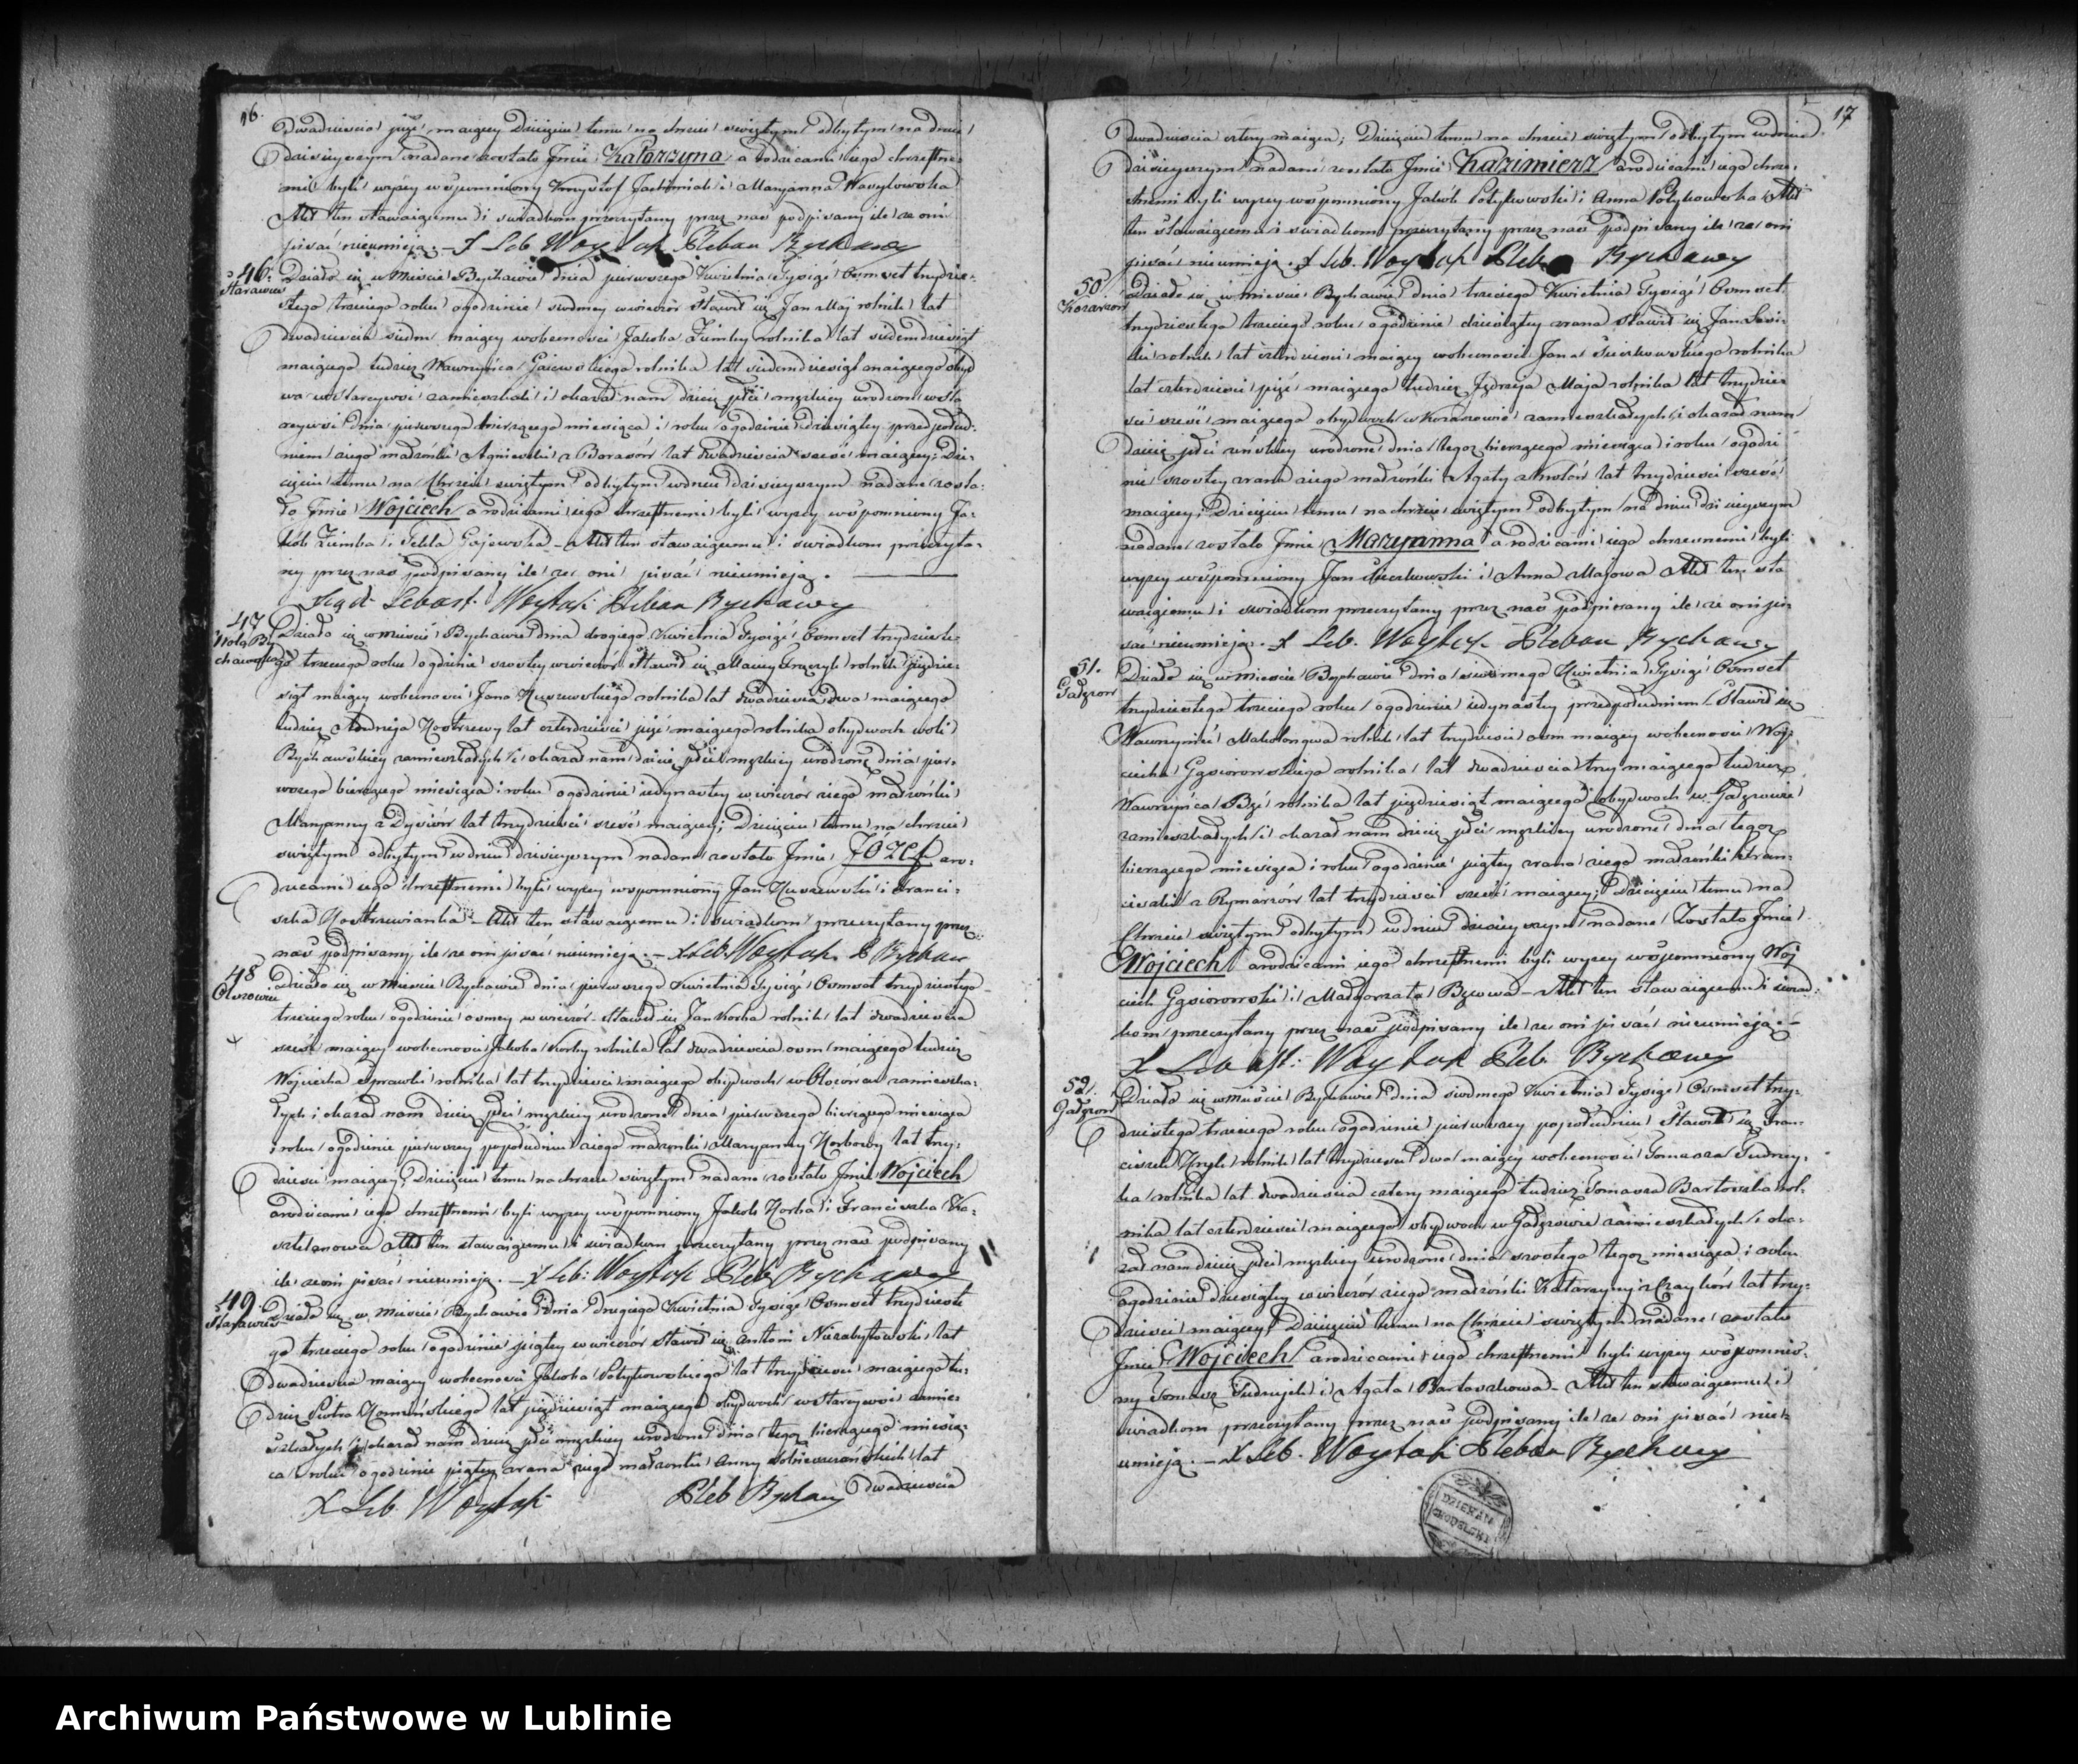 16.
Dwadziescia pięć maiący Dziecięciu temu na chrzcie swiętym odbytym na dniu
dzisieyszym nadane zostało Jmie Katarzyna a rodzicami iego chrzestne-
mi byli wyzey wspomniony Krzysztof i Maryanna Wasylowska
Akt ten stawaiącemu i swiadkom przeczytany przez nas podpisany ile ze oni
pisać nieumieją. – X Seb Woytak Pleban Bychawy
46.
Starawieś
Działo się w Miescie Bychawie dnia pierwszego Kwietnia Tysiąć Osmset trzydzie-
stego trzeciego roku o godzinie siodmey wwieczór Stawił się Jan Maj rolnik lat
dwadziescia siedm maiący wobecności Jakoba Zięmby rolnika lat siedmdziesiąt
maiącego tudziez Wawrzyńca Gaiewskiego rolnika lat siedmdziesiąt maiącego obyd
wa w Starejwsi zamieszkali i okazał nam dziecię płci męzkiey urodzone wsta
reywsi dnia pierwszego bierzącego miesiąca i roku o godzinie dziewiątey przed połud-
niem z iego małżonki Agnieszki z Borasów lat dwadziescia szesć maiącey; Dzi-
cięciu temu na Chrzcie swiętym odbytym wdniu dzisieyszym nadane zosta-
ło Jmie Wojciech a rodzicami iego chrzestnemi byli wyzey wspomniony Ja-
kób Zięmba i Tekla Gajewska – Akt ten stawaiącemu i swiadkom przeczyta-
ny przez nas podpisany ile ze oni pisać nieumieją.
Sebast. Woytak Pleban Bychawy
47
Wola By
chawska
Działo się w miescie Bychawie dnia drogiego Kwietnia Tysiąć Osmset trzydzieste-
go trzeciego roku o godzinie szostey wwieczór Stawił się Maciey rolnik pięćdzie-
siąt maiący wobecności Jana Kuszewskiego rolnika lat dwadziescia dwa maiącego
tudziez Andrzeja Kostrzewy lat czterdziesci pięć maiącego rolnika obydwoch woli
Bychawskiey zamieszkałych i okazał nam dziecię płci męzkiey urodzone dnia pier-
wszego bierzącego miesiąca i roku o godzinie iedynastey wwieczór z iego małżonki
Maryanny z Dysiów lat trzydziesci szesć maiącey; Dziecięciu temu na chrzcie
swiętym odbytym w dniu dzisieyszym nadane zostało Jmie JOZEf aro-
dzicami iego chrzestnemi byli wyzey wspomniony Jan Kuszewski i Franci-
szka Kostrzewianka – Akt ten stawaiącemu i swiadkom przeczytany przez
nas podpisany ile ze oni pisać nieumieją. – X Seb Woytak P Bychaw
48
Olszowiec
Działo się w Miescie Bychawie dnia pierwszego Kwietnia Tysiąć Osmset trzydziestego
trzeciego roku o godzinie osmey w wieczór Stawił się Jan Korba rolnik lat dwadziescia
szesć maiący wobecności Jakoba Korby rolnika lat dwadziescia osm maiącego tudziez
Wojciecha Sprawki rolnika lat trzydziesci maiącego obydwoch w zamieszka-
łych i okazał nam dziecię płci męzkiey urodzone dnia pierwszego bierzącego miesiąca
i roku o godzinie pierwszey popołudniu z iego małżonki Maryanny Korbowy lat trzy-
dziesci maiącey; Dziecięciu temu na chrzcie swiętym nadane zostało Jmie Wojciech
arodzicami iego chrzestnemi byli wyzey wspomniony Jakob Korba i Franciszka Ka-
sztelanowa Akt ten stawaiącemu i swiadkom przeczytany przez nas podpisany
ile ze oni pisać nieumieją. – X Seb: Woytak Pleb Bychawy
49.
Starawieś
Działo się w Miescie Bychawie dnia drugiego Kwietnia Tysiąć Osmset trzydzieste
go trzeciego roku o godzinie piątey wwieczór stawił się Antoni Niezabytowski lat
dwadziescia maiący wobecności Jakoba Potykowskiego lat trzydziesci maiącego tu-
dziez Piotra lat pięćdziesiąt maiącego obydwoch w Starejwsi zamie-
szkałych i okazał nam dziecię płci męzkiey urodzone dnia tegoz bierzącego miesią-
ca i roku o godzinie piątey zrana z iego małżonki Anny lat
dwadziescia
X Seb Woytak Pleb Bychawy
17
dwadziescia cztery maiąca; Dziecięciu temu na chrzcie swiętym odbytym wdniu
dzisieyszym nadane zostało Jmie Kazimierz arodzicami iego chrze-
stnemi byli wyzey wspomniony Jakób Potykowski i Anna Potykowska Akt
ten stawaiącemu i swiadkom przeczytany przez nas podpisany ile ze oni
pisać nieumieją. X Seb. Woytak Pleb Bychawy
50
Kozarzów
Działo się w miescie Bychawie dnia trzeciego Kwietnia Tysiąć Osmset
trzydziestego trzeciego roku o godzinie dziesiątey zrana stawił się Jan
rolnik lat czterdziesci maiący wobecności Jana rolnika
lat czterdziesci pięć maiącego tudziez Jędrzeja Maja rolnika lat trzydzie-
sci szesć maiącego obydwoch w Kozarzowie zamieszkałych i okazał nam
dziecię płci zeńskiey urodzone dnia tegoz bierzącego miesiąca i roku o godzi
nie szostey zrana z iego małżonki Agaty z lat trzydziesci szesć
maiącey; Dziecięciu temu na chrzcie swiętym odbytym na dniu dzisieyszym
nadane zostało Jmie Maryanna a rodzicami iego chrzesnemi byli
wyzey wspomniony Jan i Anna Majowa Akt ten sta
waiącemu i swiadkom przeczytany przez nas podpisany ile ze oni pi-
sać nieumieją. X Seb. Woytak Pleban Bychawy
51.
Gałęzow
Działo się w Miescie Bychawie dnia siodmego Kwietnia Tysiąć Osmset
trzydziestego trzeciego roku o godzinie iedynastey przedpołudniem Stawił się
Wawrzyniec rolnik lat trzydziesci osm maiący wobecności Woy-
ciecha Gąsiorowskiego rolnika lat dwadziescia trzy maiącego tudziez
Wawrzyńca Bzé rolnika lat pięćdziesiąt maiącego obydwoch w Gałęzowie
zamieszkałych i okazał nam dziecię płci męzkiey urodzone dnia tegoz
bierzącego miesiąca i roku o godzinie piątey zrana z iego małżonki Fran-
ciszki z Rymarzów lat trzydziesci szesć maiącey; Dziecięciu temu na
Chrzcie swiętym odbytym w dniu dzisieyszym nadane zostało Jmie
Wojciech arodzicami iego chrzestnemi byli wyzey wspomniony Woj
ciech Gąsiorowski i Małgorzata Bzowa – Akt ten stawaiącemu i swiad-
kom przeczytany przez nas podpisany ile ze oni pisać nieumieją. –
X Sebast: Woytak Pleb Bychawy
52.
Gałęzow
Działo się w Miescie Bychawie dnia siodmego Kwietnia Tysiąć Osmset trzy-
dziestego trzeciego roku o godzinie pierwszey popołudniu Stawił się Fran-
ciszek Kryk rolnik lat trzydziesci dwa maiący wobecności Tomasza Tudruy-
ka rolnika lat dwadziescia cztery maiącego tudziez Tomasza Bartoszka rol-
nika lat czterdziesci maiącego obydwoch w Gałęzowie zamieszkałych i oka-
zał nam dziecię płci męzkiey urodzone dnia szostego tegoz miesiąca i roku
o godzinie dziewiątey wwieczór z iego małżonki Katarzyny z lat trzy-
dziesci maiącey Dziecięciu temu na Chrzcie swiętym nadane zostało
Jmie Wojciech arodzicami iego chrzestnemi byli wyzey wspomnio-
ny Tomasz Tudrujek i Agata Bartoszkowa – Akt ten stawaiącemu i
swiadkom przeczytany przez nas podpisany ile ze oni pisać nie-
umieją. – X Seb. Woytak Pleban Bychawy
DZIEKAN
Archiwum Państwowe w Lublinie